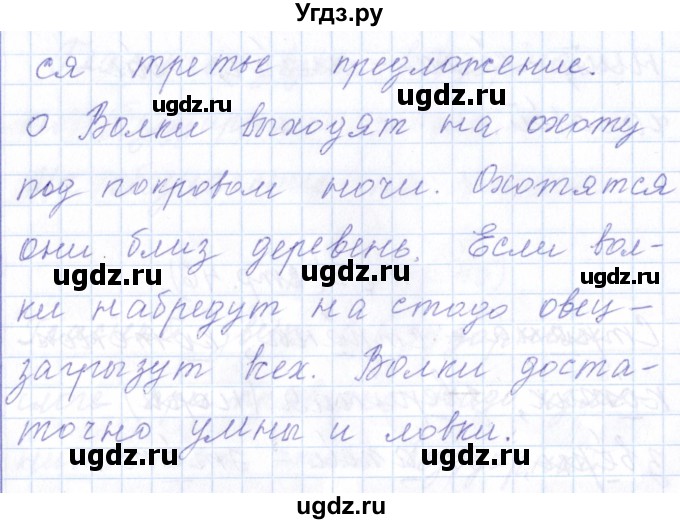 Угдз.ру
ся третье предложение.
ugdz.ru ugdz.ru
о Волки выходят на охоту
под покровом ночи. Охотятся
они близ деревень. Если вол-
ugdz.ru ugdz.ru ugdz.ru
ки набредут на стадо овец -
загрызут всех. Волки доста-
точно умны и ловки.
ugdz.ru ugdz.ru
ugdz.ru